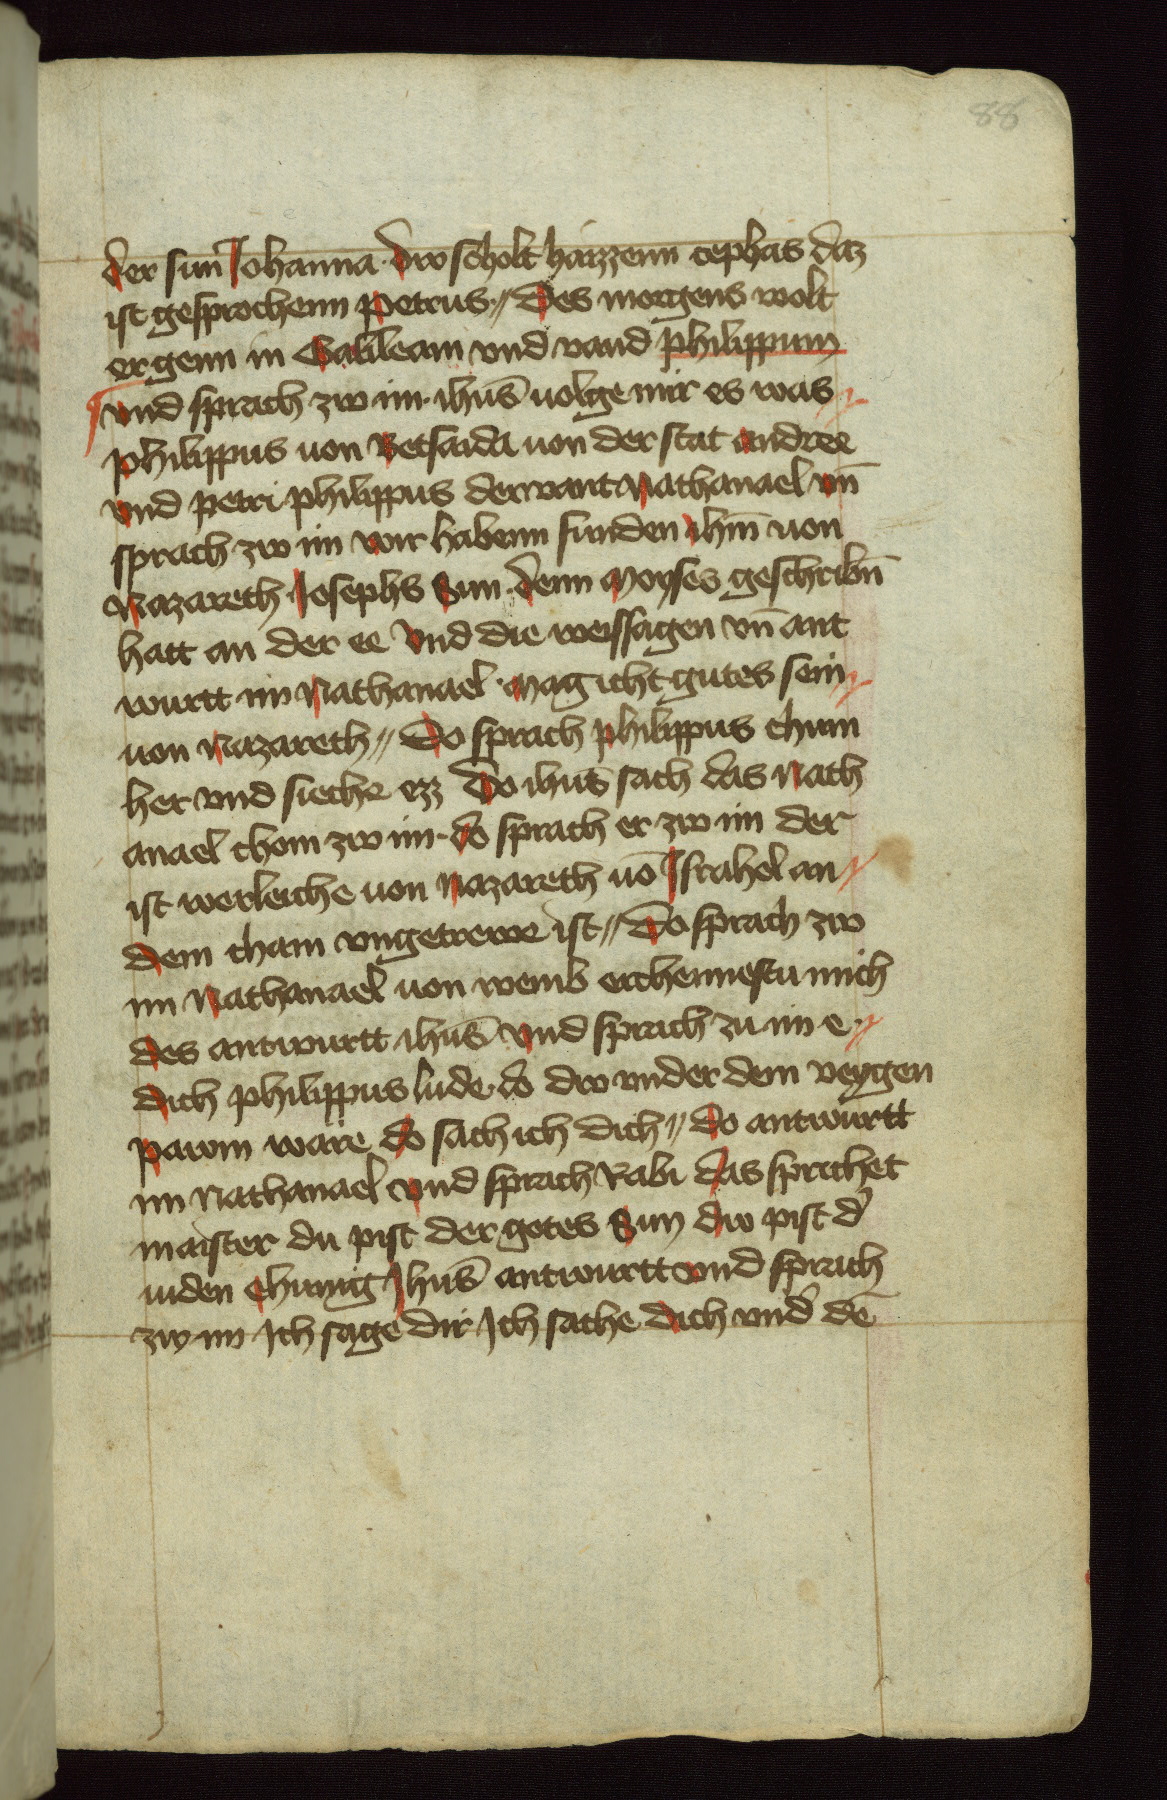 88
der sun Johanna · dw scholt haizzenn cephas daz
ist gesprochenn Petrus // Des morgens wolt
er genn in Galileam vnd vand philippum
vnd sprach zw im · ihus̄ uolge mir es was //
philippus von Betsaida von der stat andree
vnd petri philippus der vant Nathanael vn̄
sprach zw im wir habenn funden ihm̄ von
Nazareth · Josephs Sun · denn Moyses geschribn̄
hatt an der ee vnd die weissagen vn̄ ant
wurtt im Nathanael · mag icht gutes sein //
von Nazareth // Do sprach philippus chum
her vnd siethe ezz Do ihus̄ sach das Nath
anael chom zw im · do sprach er zw im der
ist werleiche von Nazareth uō Israhel an //
dem cham vngetrewe ist // Do sprach zw
im Nathanael von wemb erchennestu mich
des antwurtt ihus̄ vnd sprach zu im e //
dich philippus lude · do dw vnder dem veygen
pawm ware do sach ich dich // do antwurtt
im Nathanael vnd sprach Rabi das sprichet
maister du pist der gotes Sun dw pist d'
iuden chunig Jhus̄ antwurtt vnd sprach
zw im Ich sage dir Ich sathe dich vnd' dē